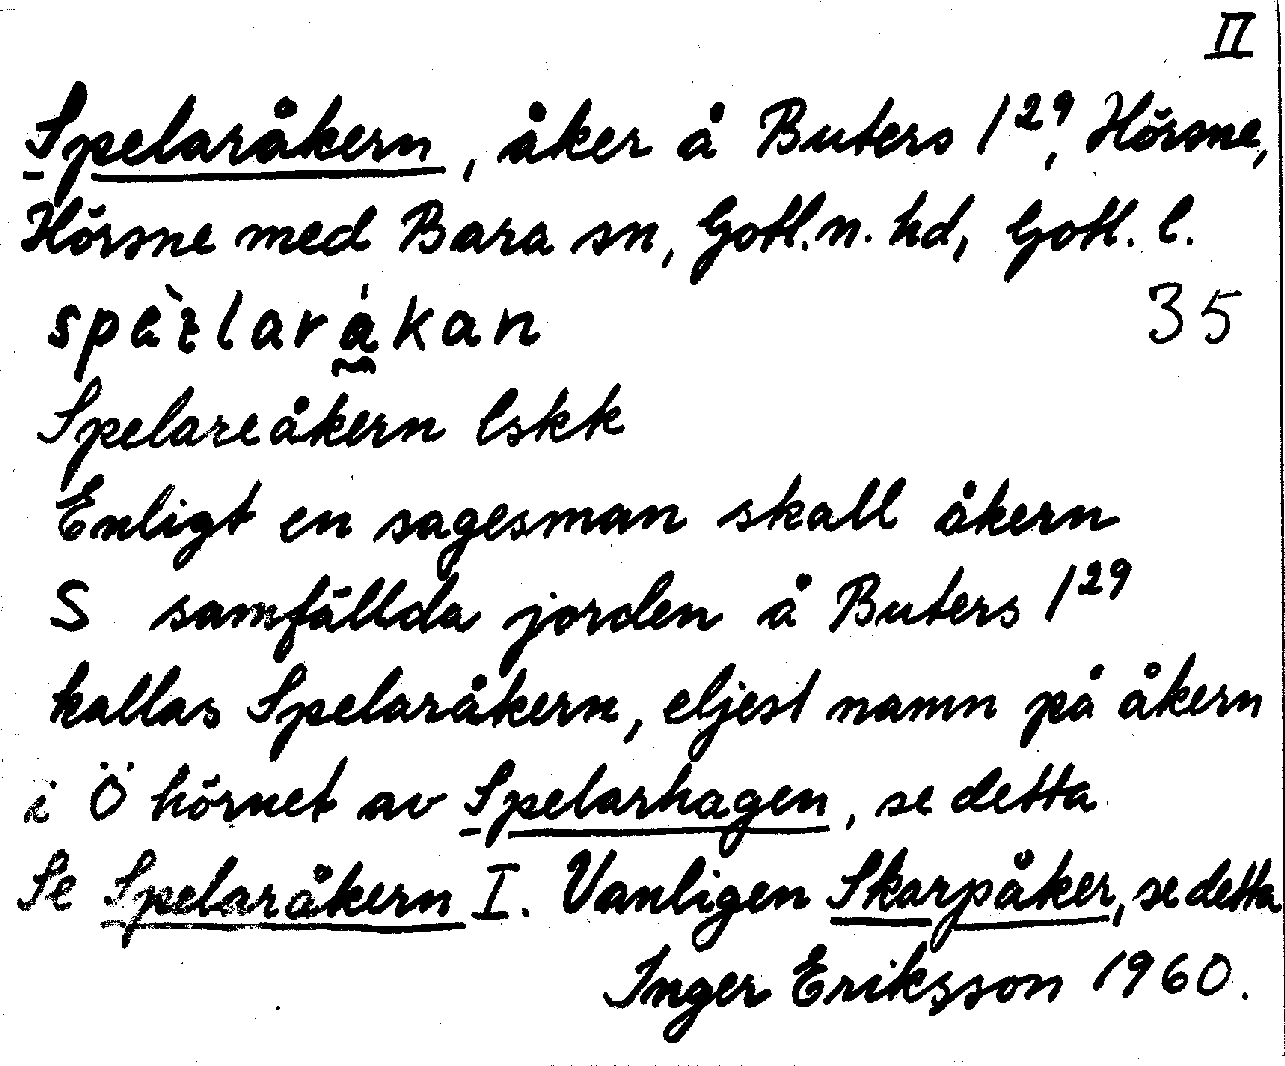 II
Spelaråkern, åker å Buters 1²⁹, Hörsne,
Hörsne med Bara sn, Gotl.n. hd, Gotl. l.
35
Spelareåkern lskk
Enligt en sagesman skall åkern
S samfällda jorden å Buters 1²⁹
kallas Spelaråkern, eljest namn på åkern
i Ö hörnet av Spelarhagen, se detta
Se Spelaråkern I. Vanligen Skarpåker, se detta
Inger Eriksson 1960.